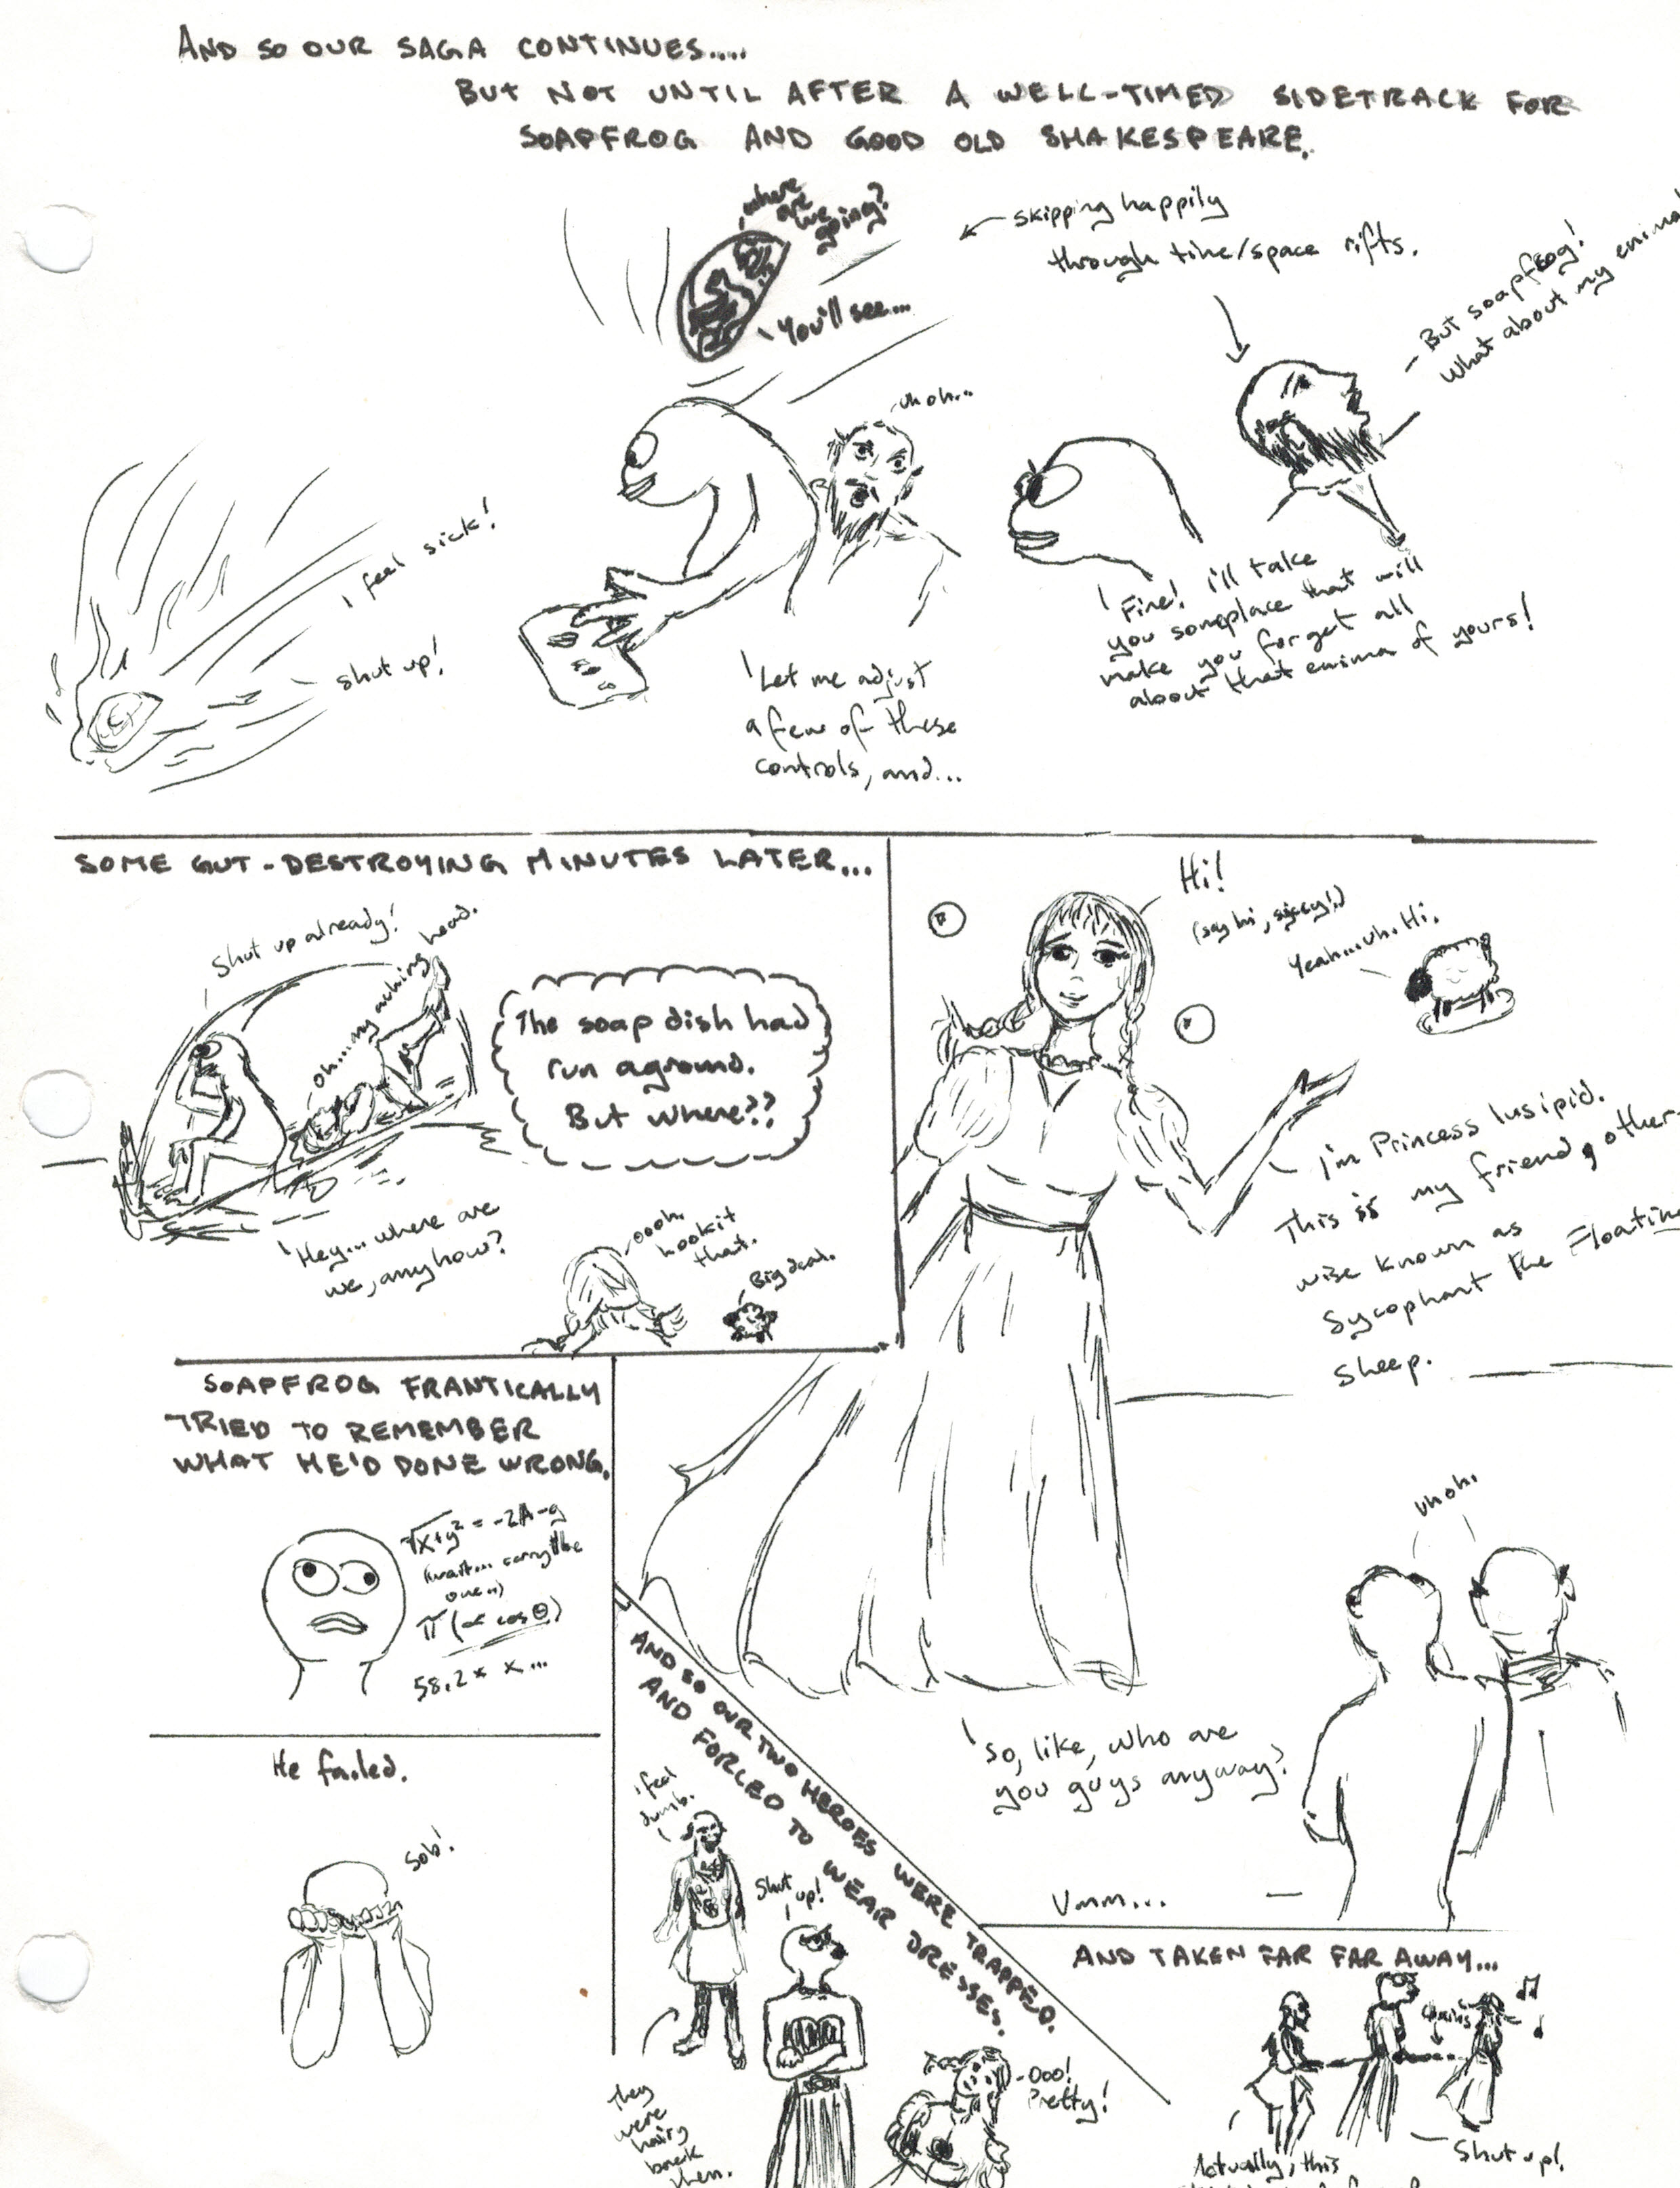 AND SO OUR SAGA CONTINUES.....
BUT NOT UNTIL AFTER A WELL-TIMED SIDETRACK FOR
SOAPFROG AND GOOD OLD SHAKESPEARE.
where
are
we
going?
You'll see...
skipping happily
through time/space rifts.
But soapfrog!
What about my
Fine! i'll take
you someplace that will
make you forget all
about that enima of yours!
uhoh...
'Let me adjust
a few of these
controls, and...
I feel sick!
shut up!
SOME GUT-DESTROYING MINUTES LATER...
Shut up already!
Oh...my aching head.
The soap dish had
run aground.
But where??
'Hey... where are
we, anyhow?
oooh.
lookit
that.
Big deal.
Hi!
(say hi,
Yeah...uh. Hi.
I'm Princess Iusipid.
This is my friend, other-
wise known as
Sycophant the Floating
Sheep.
uhoh.
'So, like, who are
you guys anyway?
Umm...
SOAPFROG FRANTICALLY
TRIED TO REMEMBER
WHAT HE'D DONE WRONG.
√x+y² = -2A-g
(wait... carry the
one..)
π(∝ cos θ)
58.2* x...
He failed.
Sob!
AND SO OUR TWO HEROES WERE TRAPPED.
AND FORCED TO WEAR DRESSES.
I feel
dumb.
Shut
up!
They
were
hairy
back
then.
Ooo!
Pretty!
AND TAKEN FAR FAR AWAY...
chains
Shut up!
Actually, this